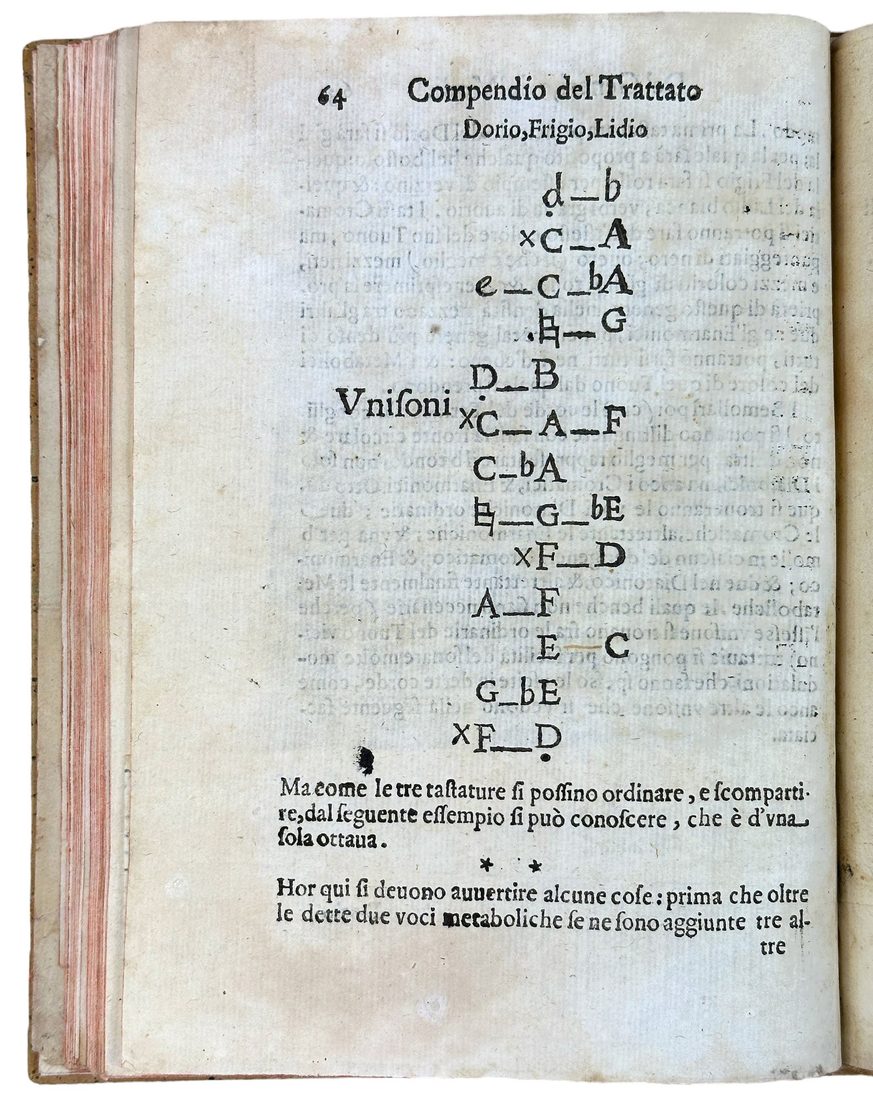 64 Compendio del Trattato
Dorio, Frigio, Lidio
d — b
×C — A
e — C — bA
.♮ — G
D — B
Vniſoni ×C — A — F
C — bA
♮ — G — bE
×F — D
A — F
E — C
G — bE
×F — D
Ma come le tre taſtature ſi poſſino ordinare, e ſcomparti-
re, dal ſeguente eſſempio ſi può conoſcere, che è d'vna
ſola ottaua.
* *
Hor qui ſi deuono auuertire alcune coſe: prima che oltre
le dette due voci metaboliche ſe ne ſono aggiunte tre al-
tre